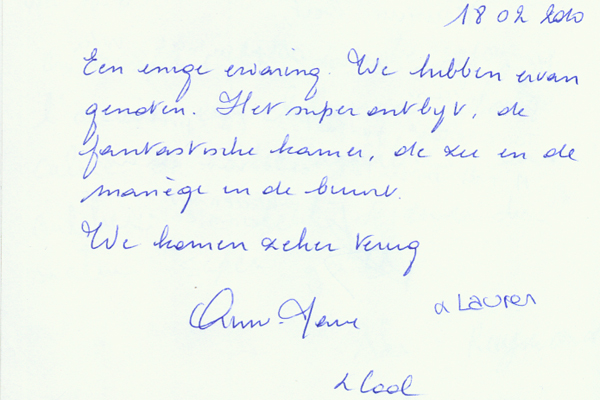 18 02 2010
Een enige ervaring. We hebben ervan
genoten. Het super ontbijt, de
fantastische kamer, de zee en de
manège in de buurt.
We komen zeker terug
Ann-
& Lauren
&